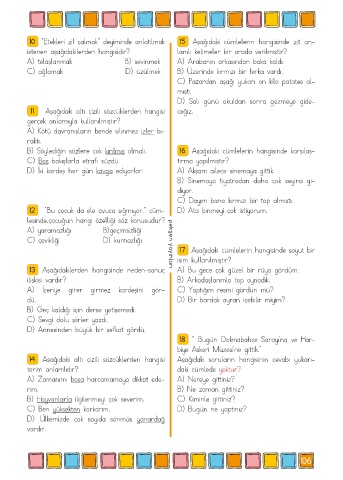 10 "Etekleri zil çalmak" deyiminde anlatılmak
istenen aşağıdakilerden hangisidir?
A) telaşlanmak B) sevinmek
C) ağlamak D) üzülmek
11 Aşağıdaki altı çizili sözcüklerden hangisi
gerçek anlamıyla kullanılmıştır?
A) Kötü davranışların bende silinmez izler bı-
raktı.
B) Söylediğin sözlere çok kırılmış olmalı.
C) Boş bakışlarla etrafı süzdü.
D) İki kardeş her gün kavga ediyorlar.
12 "Bu çocuk da ele avuca sığmıyor." cüm-
lesinde,çocuğun hangi özelliği söz konusudur?
A) yaramazlığı B)geçimsizliği
C) çevikliği D) kurnazlığı
13 Aşağıdakilerden hangisinde neden-sonuç
ilişkisi vardır?
A) İçeriye girer girmez kardeşini gör-
dü.
B) Geç kaldığı için derse yetişemedi.
C) Sevgi dolu şiirler yazdı.
D) Annesinden büyük bir şefkat gördü.
14 Aşağıdaki altı çizili sözcüklerden hangisi
terim anlamlıdır?
A) Zamanını boşa harcamamaya dikkat ede-
rim.
B) Hayvanlarla ilgilenmeyi çok severim.
C) Ben yüksekten korkarım.
D) Ülkemizde çok sayıda sönmüş yanardağ
vardır.
15 Aşağıdaki cümlelerin hangisinde zıt an-
lamlı kelimeler bir arada verilmiştir?
A) Arabanın arkasından baka kaldı.
B) Üzerinde kırmızı bir hırka vardı.
C) Pazardan aşağı yukarı on kilo patates al-
mıştı.
D) Salı günü okuldan sonra gezmeye gide-
ceğiz.
16 Aşağıdaki cümlelerin hangisinde karşılaş-
tırma yapılmıştır?
A) Akşam ailece sinemaya gittik.
B) Sinemaya tiyatrodan daha çok seyirci gi-
diyor.
C) Dayım bana kırmızı bir top almıştı.
D) Ata binmeyi çok istiyorum.
17 Aşağıdaki cümlelerin hangisinde soyut bir
isim kullanılmıştır?
A) Bu gece çok güzel bir rüya gördüm.
B) Arkadaşlarımla top oynadık.
C) Yaptığım resmi gördün mü?
D) Bir bardak ayran içebilir miyim?
18 " Bugün Dolmabahçe Sarayına ve Har-
biye Askeri Müzesi'ne gittik."
Aşağıdaki soruların hangisinin cevabı yukarı-
daki cümlede yoktur?
A) Nereye gittiniz?
B) Ne zaman gittiniz?
C) Kiminle gittiniz?
D) Bugün ne yaptınız?
106